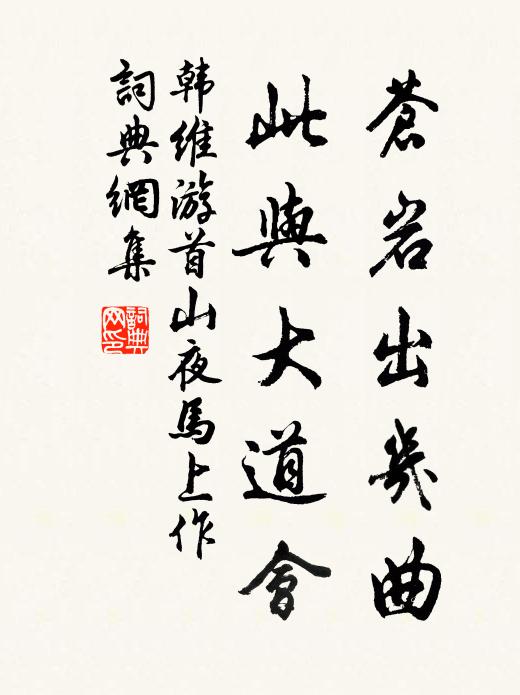 蒼岩出幾曲
此與大道會
韩維游首山夜馬上作
詞典網集
詞典网印